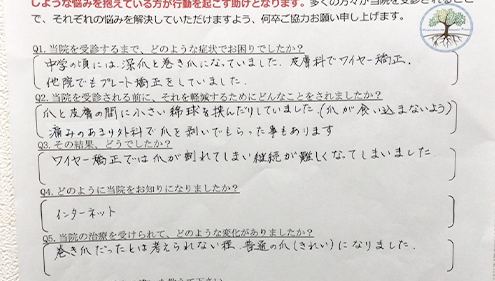 しような悩みを抱えている方が行動を起こす助けとなります。多くの方々が当院を受診されること
で、それぞれの悩みを解決していただけますよう、何卒ご協力お願い申し上げます。
Q1. 当院を受診するまで、どのような症状でお困りでしたか？
中学の頃には深爪と巻き爪になっていました。皮膚科でワイヤー矯正.
他院でもプレート矯正をしていました.
Q2. 当院を受診される前に、それを軽減するためにどんなことをされましたか？
爪と皮膚の間に小さい綿球を挟んだりしていました.(爪が食い込まないよう)
痛みのあまり外科で爪を剥いでもらった事もあります
Q3. その結果、どうでしたか？
ワイヤー矯正では爪が割れてしまい継続が難しくなってしまいました.
Q4. どのように当院をお知りになりましたか？
インターネット
Q5. 当院の治療を受けられて、どのような変化がありましたか？
巻き爪だったとは考えられない程、普通の爪(きれい)になりました.